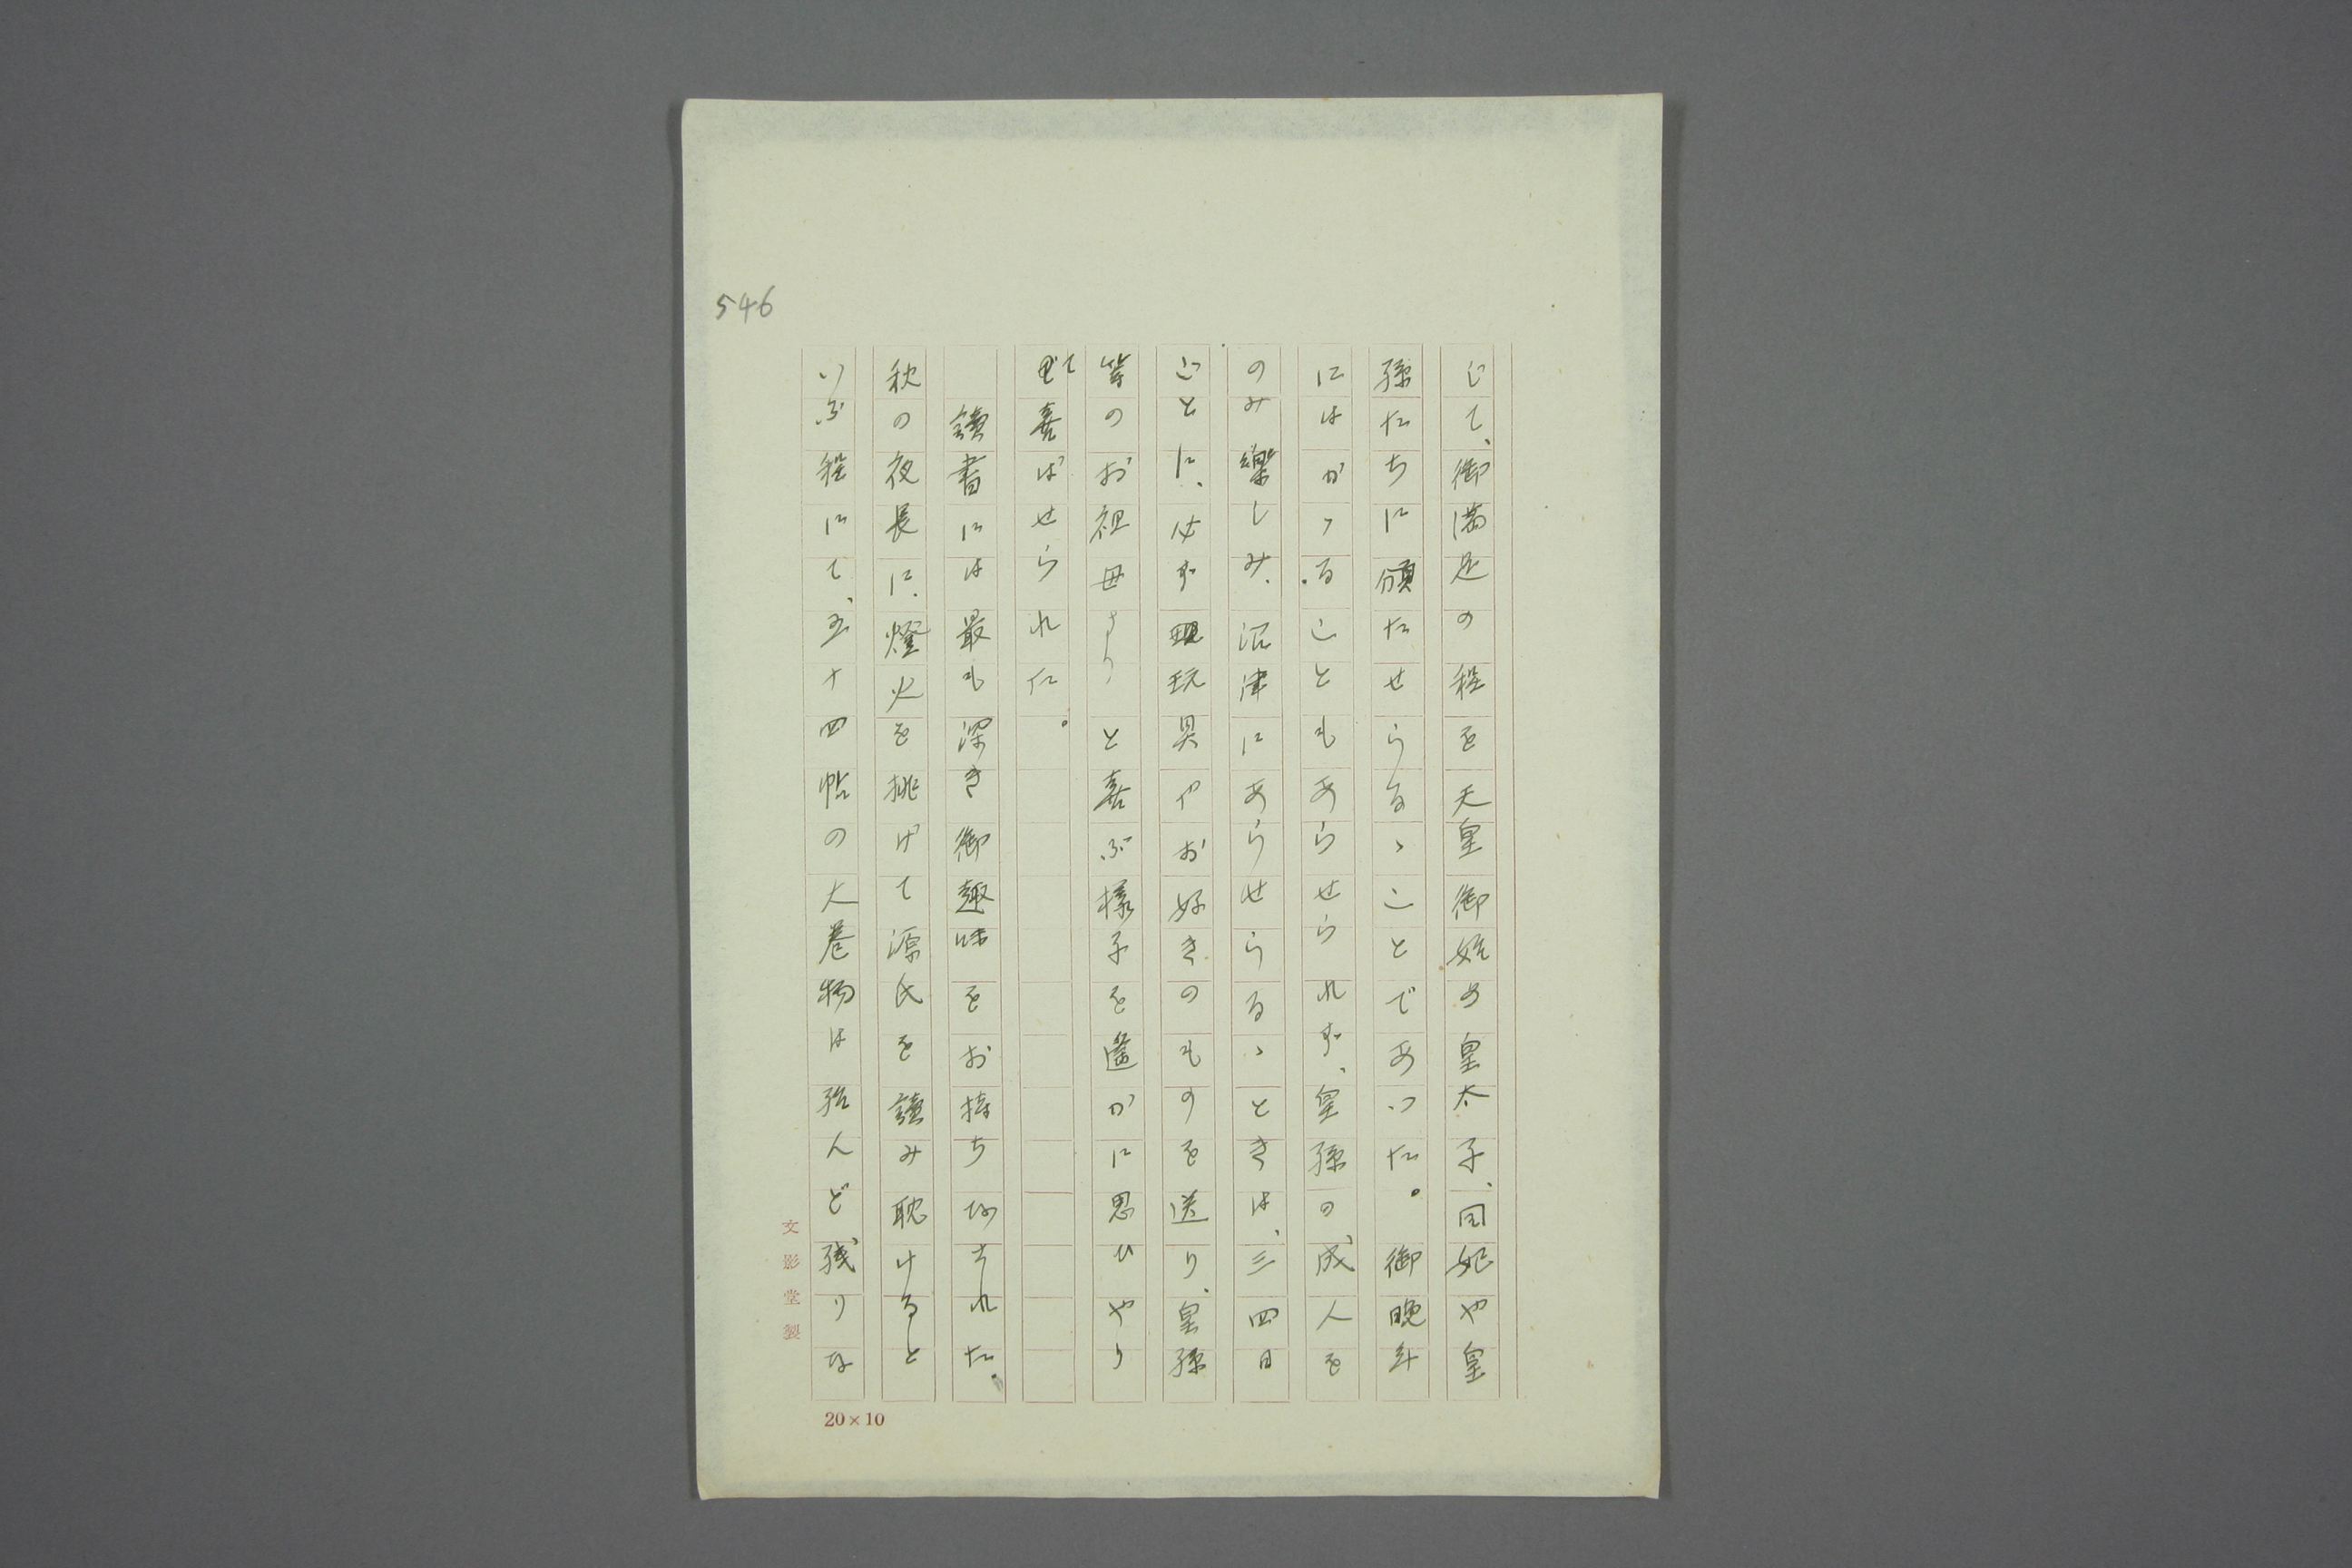 546
じて、御満足の程を天皇御始め皇太子、同妃や皇
孫たちに頒たせらるゝことであつた。御晩年
にはかゝることもあらせられず、皇孫の成人を
のみ樂しみ、沼津にあらせらるゝときは、三四日
ごとに、必ず玩具やお好きのものを送り、皇孫
等のお祖母さまと喜ぶ様子を遥かに思ひやり
て喜ばせられた。
讀書には最も深き御趣味をお持ちなされた。
秋の夜長に、燈火を挑げて源氏を讀み耽けると
いふ程にて、五十四帖の大巻物は殆んど残りな
文影堂製
20×10